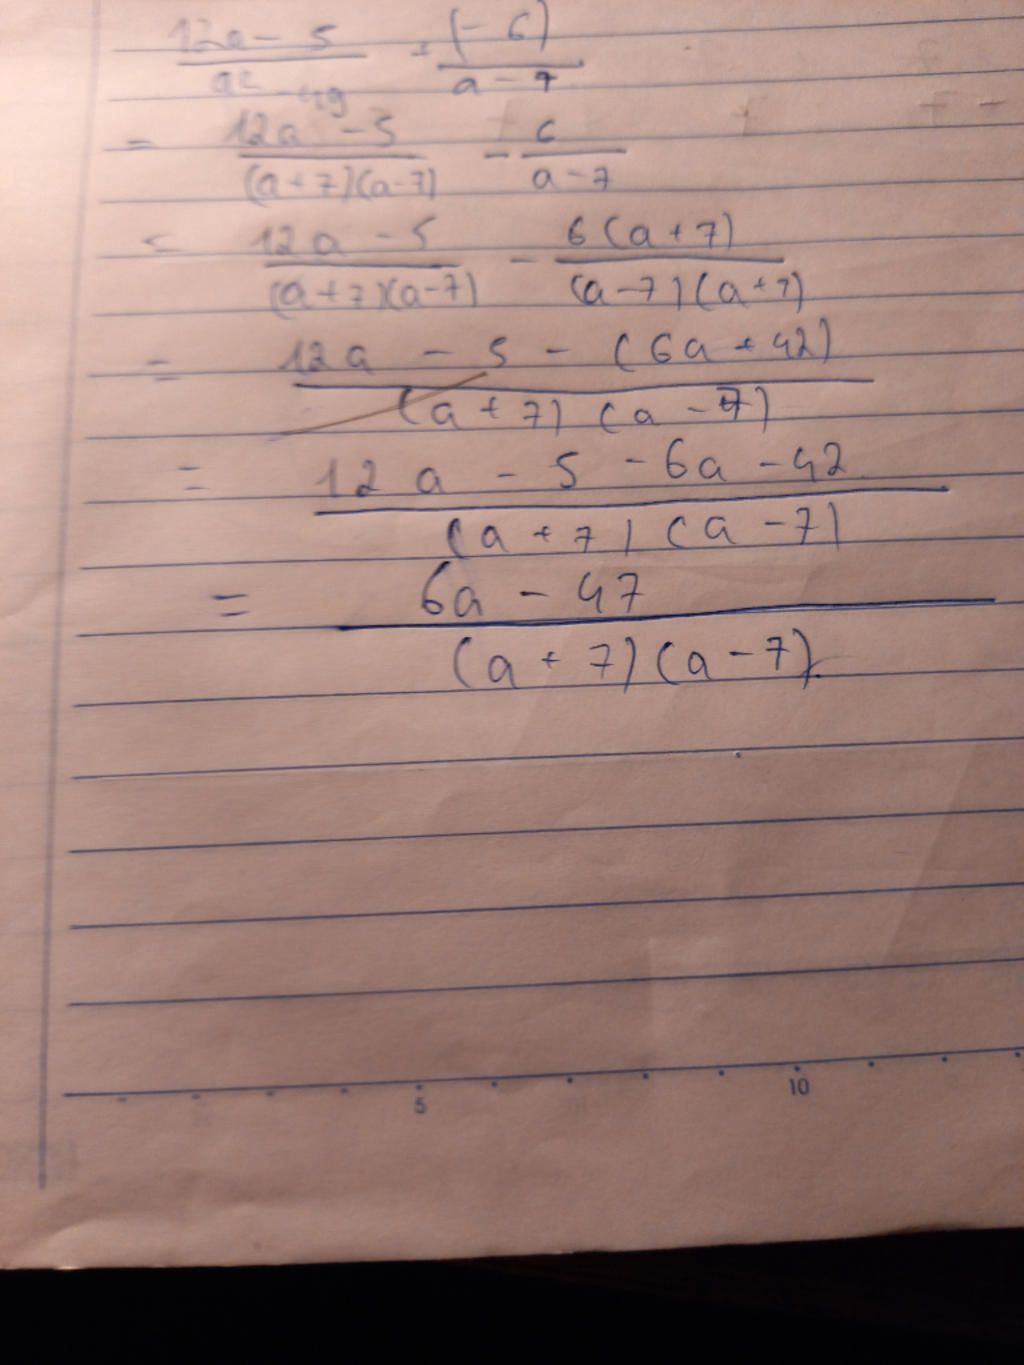 12a - 5 + (-6)
a² - 49 a - 7
= 12a - 5 - 6
(a+7)(a-7) a-7
= 12a - 5 - 6(a+7)
(a+7)(a-7) (a-7)(a+7)
= 12a - 5 - (6a + 42)
(a + 7) (a - 7)
= 12a - 5 - 6a - 42
(a + 7) (a - 7)
= 6a - 47
(a + 7)(a - 7)
5 10